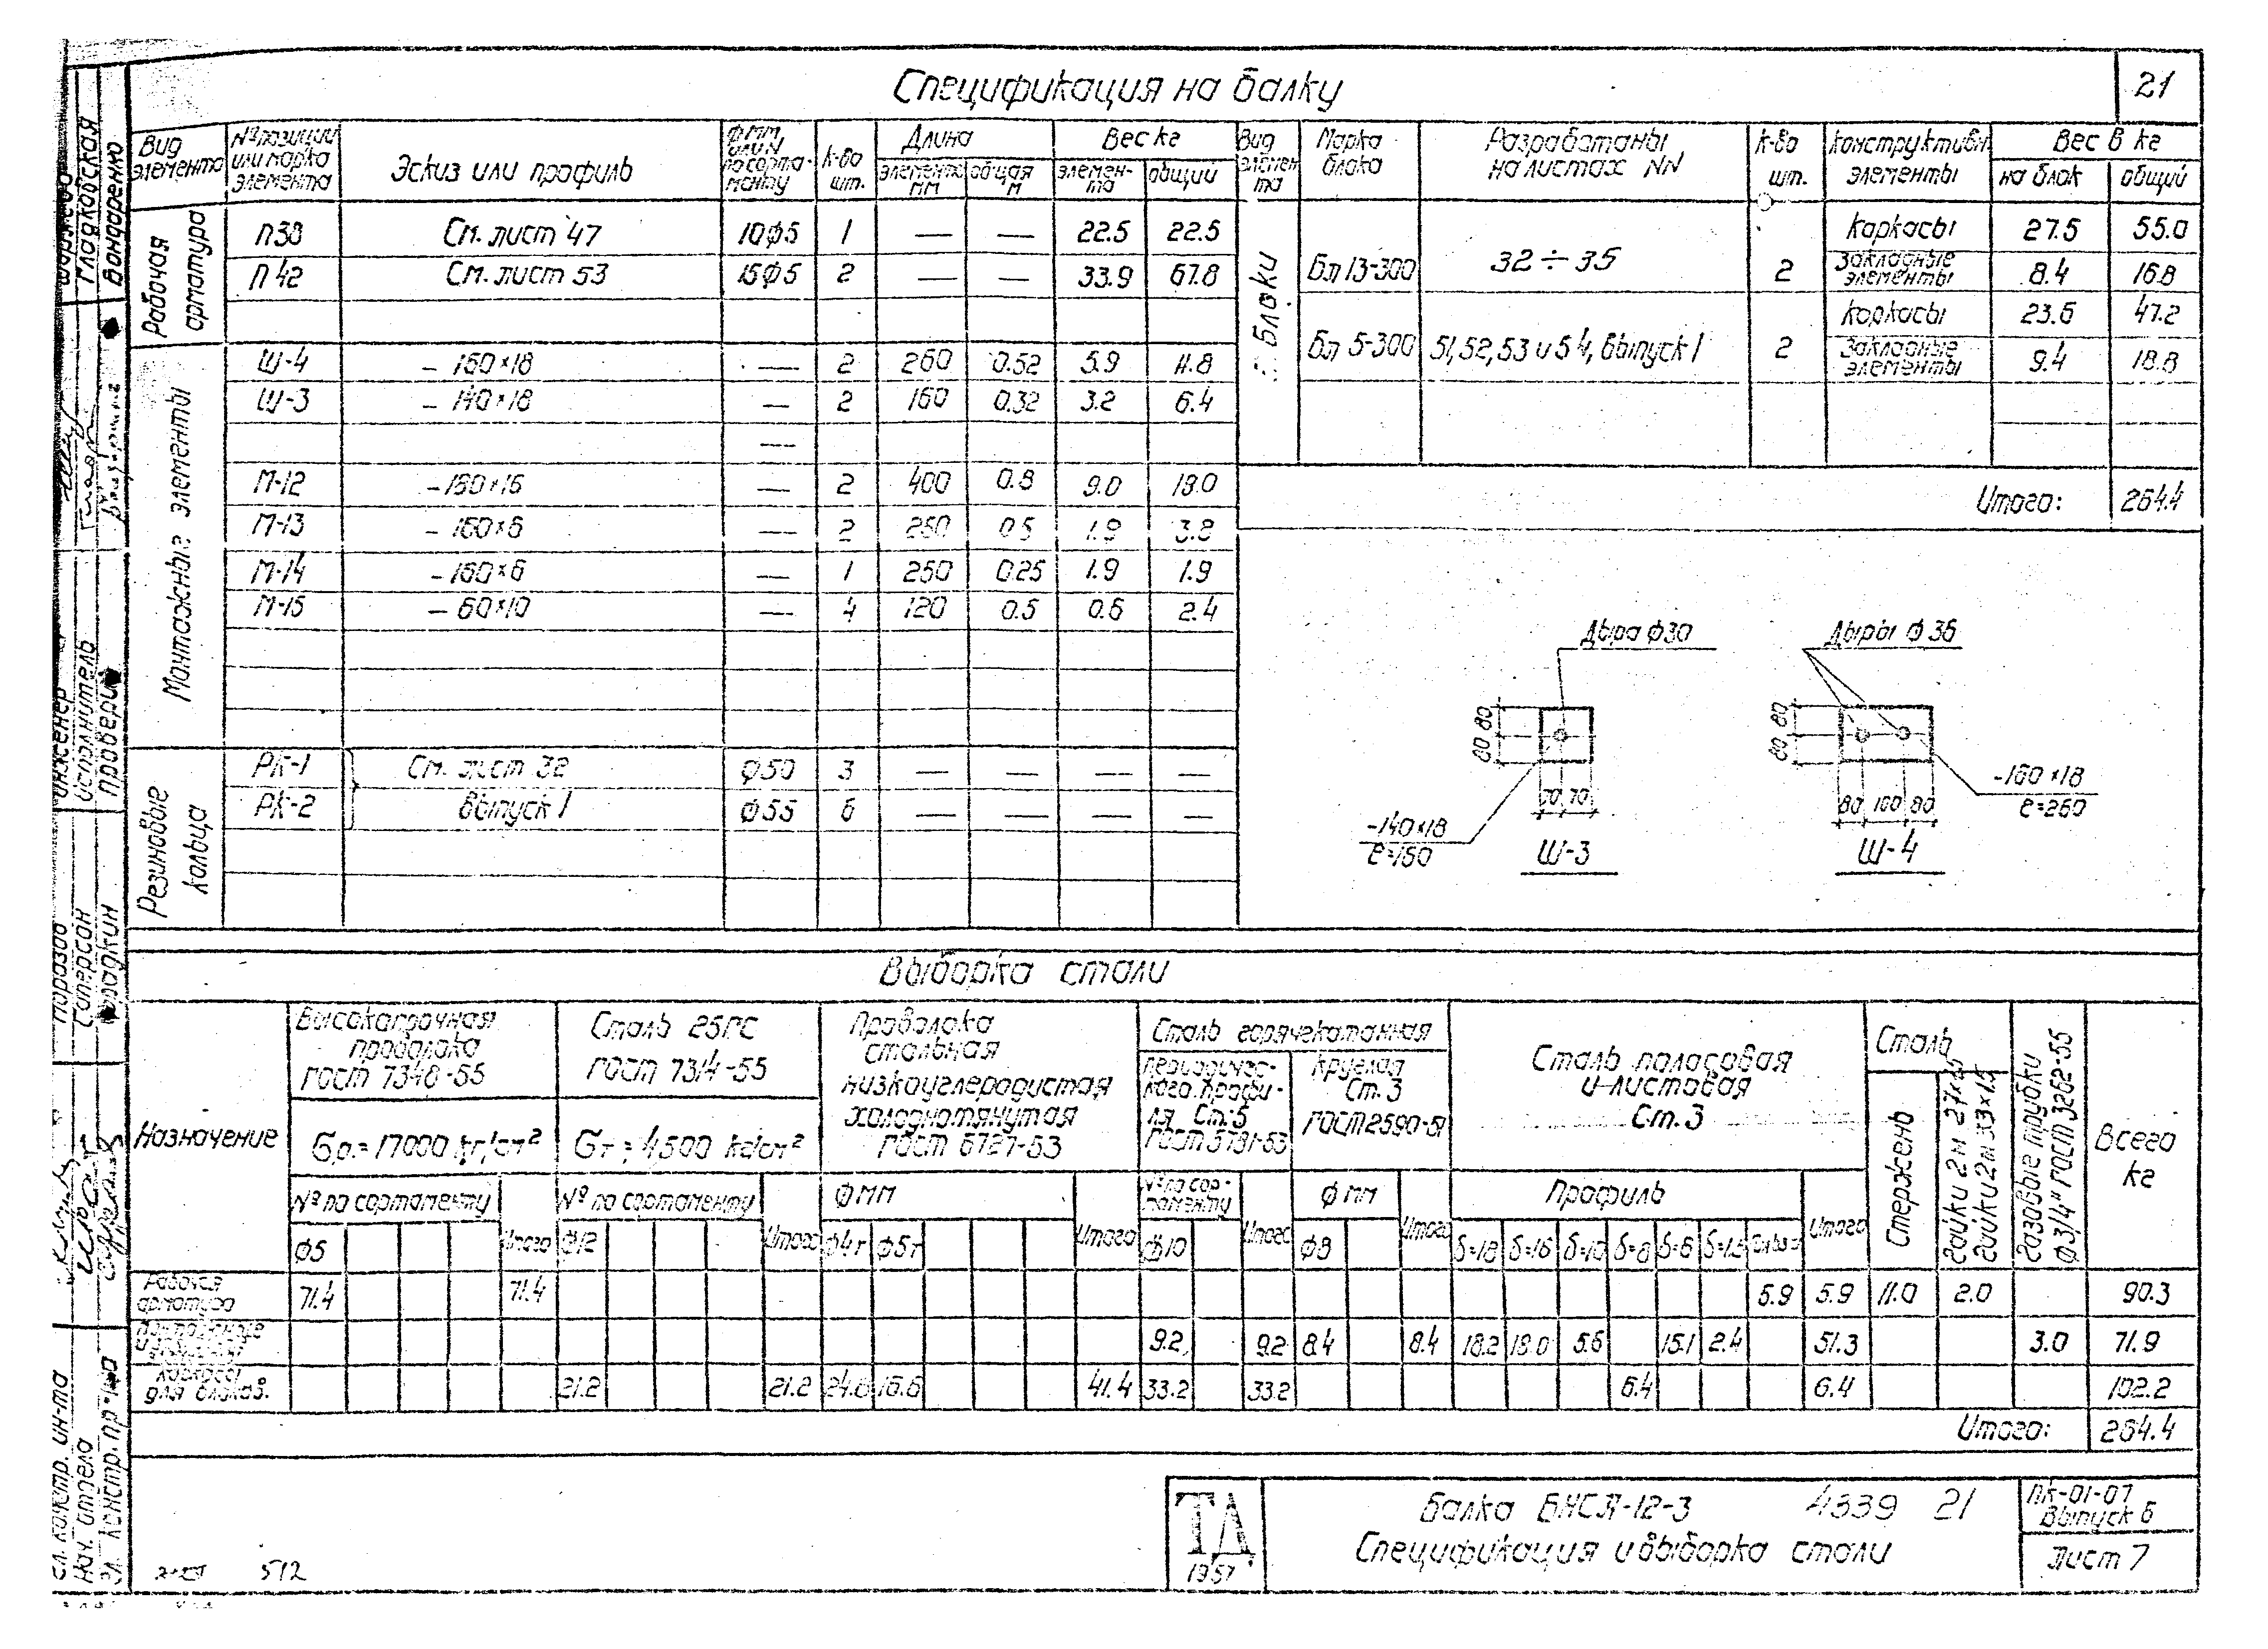 Спецификация на балку
21
Вид элемента
№ позиции или марка элемента
Эскиз или профиль
Ф мм, или N по сортаменту
к-во шт.
Длина
элемента мм
общая м
Вес кг
элемента
общий
Вид элемента
Марка блока
Разработаны на листах NN
к-во шт.
конструктивн. элементы
Вес в кг
на блок
общий
Рабочая арматура
П38 См. лист 47 10ф5 1 — — 22.5 22.5
П42 См. лист 53 15ф5 2 — — 33.9 67.8
Монтажные элементы
Ш-4 –160×18 — 2 260 0.52 5.9 11.8
Ш-3 –140×18 — 2 160 0.32 3.2 6.4
—
М-12 –160×16 — 2 400 0.8 9.0 18.0
М-13 –160×6 — 2 250 0.5 1.9 3.8
М-14 –160×6 — 1 250 0.25 1.9 1.9
М-15 –60×10 — 4 120 0.5 0.6 2.4
Резиновые кольца
РК-1 См. лист 32 ф50 3 — — — —
РК-2 выпуск 1 ф55 6 — — — —
Блоки
Бл 13-300 32÷35 2
каркасы 27.5 55.0
Закладные элементы 8.4 16.8
Бл 5-300 51, 52, 53 и 54, выпуск 1 2
каркасы 23.6 47.2
Закладные элементы 9.4 18.8
Итого: 264.4
Дыра ф30
Дыры ф 36
80 80
70 70
–140×18
ℓ=160
Ш-3
80 80
80 100 80
–160×18
ℓ=260
Ш-4
Выборка стали
Назначение
Высокопрочная проволока ГОСТ 7348-55
Сталь 25ГС ГОСТ 7314-55
Проволока стальная низкоуглеродистая холоднотянутая ГОСТ 6727-53
Сталь горячекатанная
периодического профиля Ст.5
круглая Ст.3 ГОСТ 2590-51
Сталь полосовая и листовая Ст.3
Сталь
Стержень
газовые трубки ф3/4" ГОСТ 3262-55
Всего кг
№ по сортаменту
Итого
№ по сортаменту
Итого
ф мм
Итого
№ по сортаменту
Итого
ф мм
Итого
Профиль
Итого
ф5 ф12 ф4т ф5т ф10 ф8 δ=18 δ=16 δ=10 δ=8 δ=6 δ=1.5
Рабочая арматура 71.4 71.4 5.9 5.9 11.0 2.0 90.3
9.2 9.2 8.4 8.4 18.2 18.0 5.6 15.1 2.4 51.3 3.0 71.9
Каркасы для блоков. 21.2 21.2 24.8 16.6 41.4 33.2 33.2 6.4 6.4 102.2
Итого: 264.4
ТД
1957
Балка БНСЛ-12-3
4339 21
Спецификация и выборка стали
ПК-01-07
Выпуск 6
Лист 7
512
Гл. констр. ин-та
Нач. отдела
Гл. констр. пр-та
Саперсон
инженер
исполнитель
проверил
Гладковская
Бондаренко